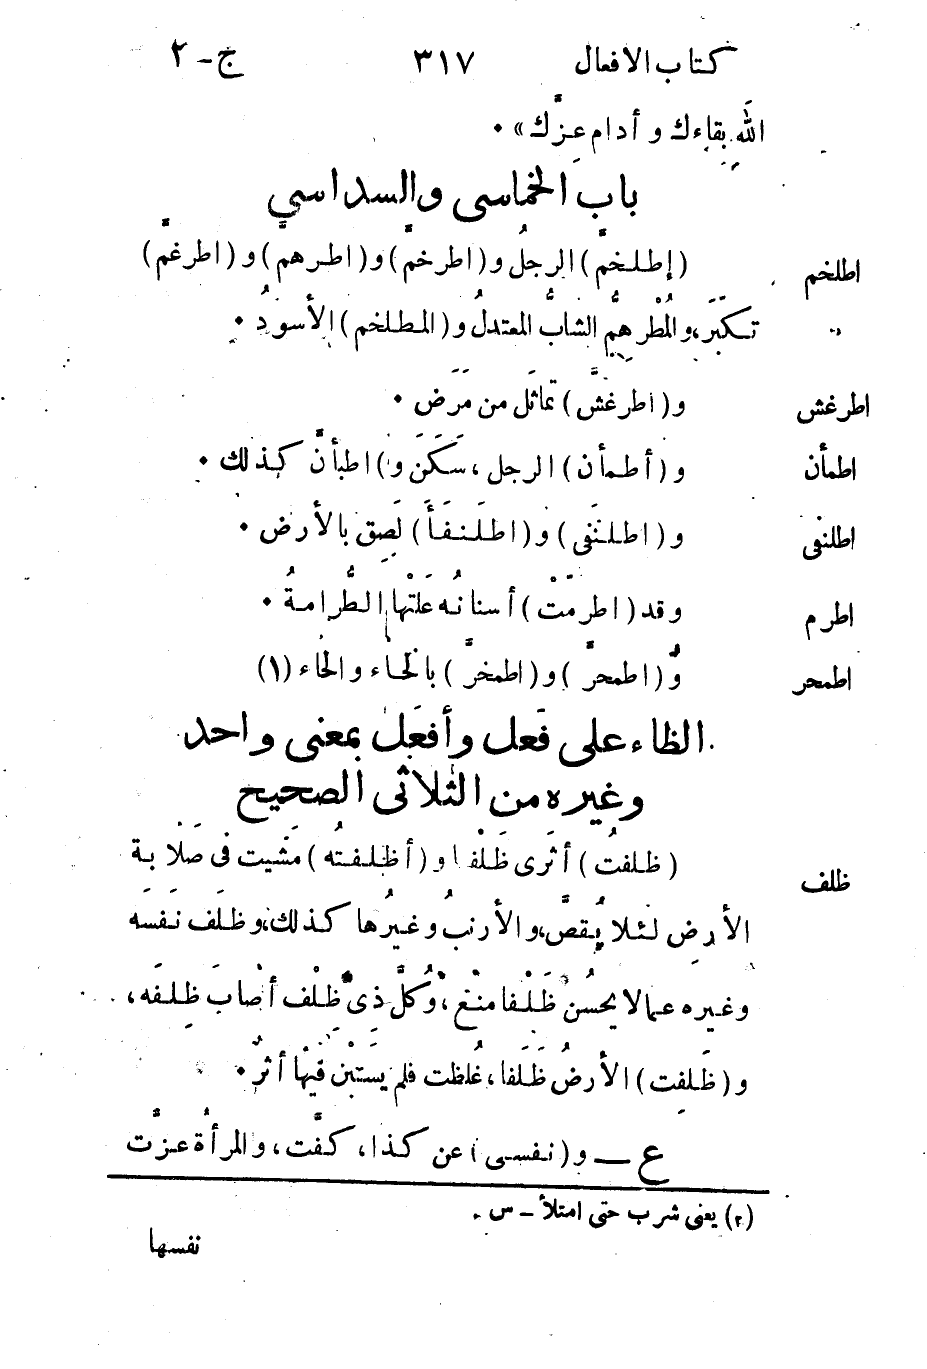 كتاب الافعال ٣١٧ ج - ٢
الله بقاءك و أدام عزّك» ٠
باب الخماسى والسداسي
اطلخم (إطلخمّ) الرجلُ و(اطرخمّ) و(اطرهم) و(اطرغمّ)
تكبَّر، والمُطْرهِمُّ الشابُّ المعتدلُ و(المطلخم) الأسودُ ٠
اطرغش و(اطرغشّ) تماثَل من مَرَض ٠
اطمأن و(أطمأن) الرجل، سَكَنَ و(اطبأنّ كذلك ٠
اطلنفى و(اطلنَفى) و(اطلَنفَأَ) لَصِق بالأرض ٠
اطرم وقد (اطرمَّتْ) أسنانُه عَلَتْها الطُّرامةُ ٠
اطمحر و(اطمحرّ) و(اطمخرّ) بالحاء والخاء (١)
الظاء على فَعل وأفعَل بمعنى واحد
وغيره من الثلاثى الصحيح
ظلف (ظلفتُ) أثَرى ظَلْفا و(أظلفتُه) مَشيت فى صَلابة
الأرض لئلا يُقصّ، والأرنبُ وغيرُها كذلك، وظلَف نفسَه
وغيره عمالا يحسُن ظَلْفا منعَ، وُكلّ ذى ظِلْف أصابَ ظِلفَه،
و(ظَلِفت) الأرضُ ظَلَفا، غلُظت فلم يَستَبنْ فيْها أثرٌ ٠
ع — و(نفسى) عن كذا، كفّت، والمرأةُ عزّت
(٢) يعنى شرب حتى امتلأ - س .
نفسها